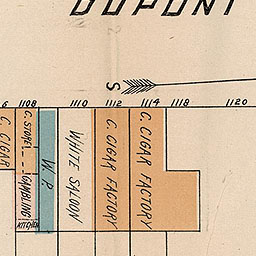 DUPONT
S
6 1108 1110 1112 1114 1118 1120
C. CIGAR
C. STORE
C. GAMBLING
KITCHEN
W. P.
WHITE SALOON
C. CIGAR FACTORY
C. CIGAR FACTORY